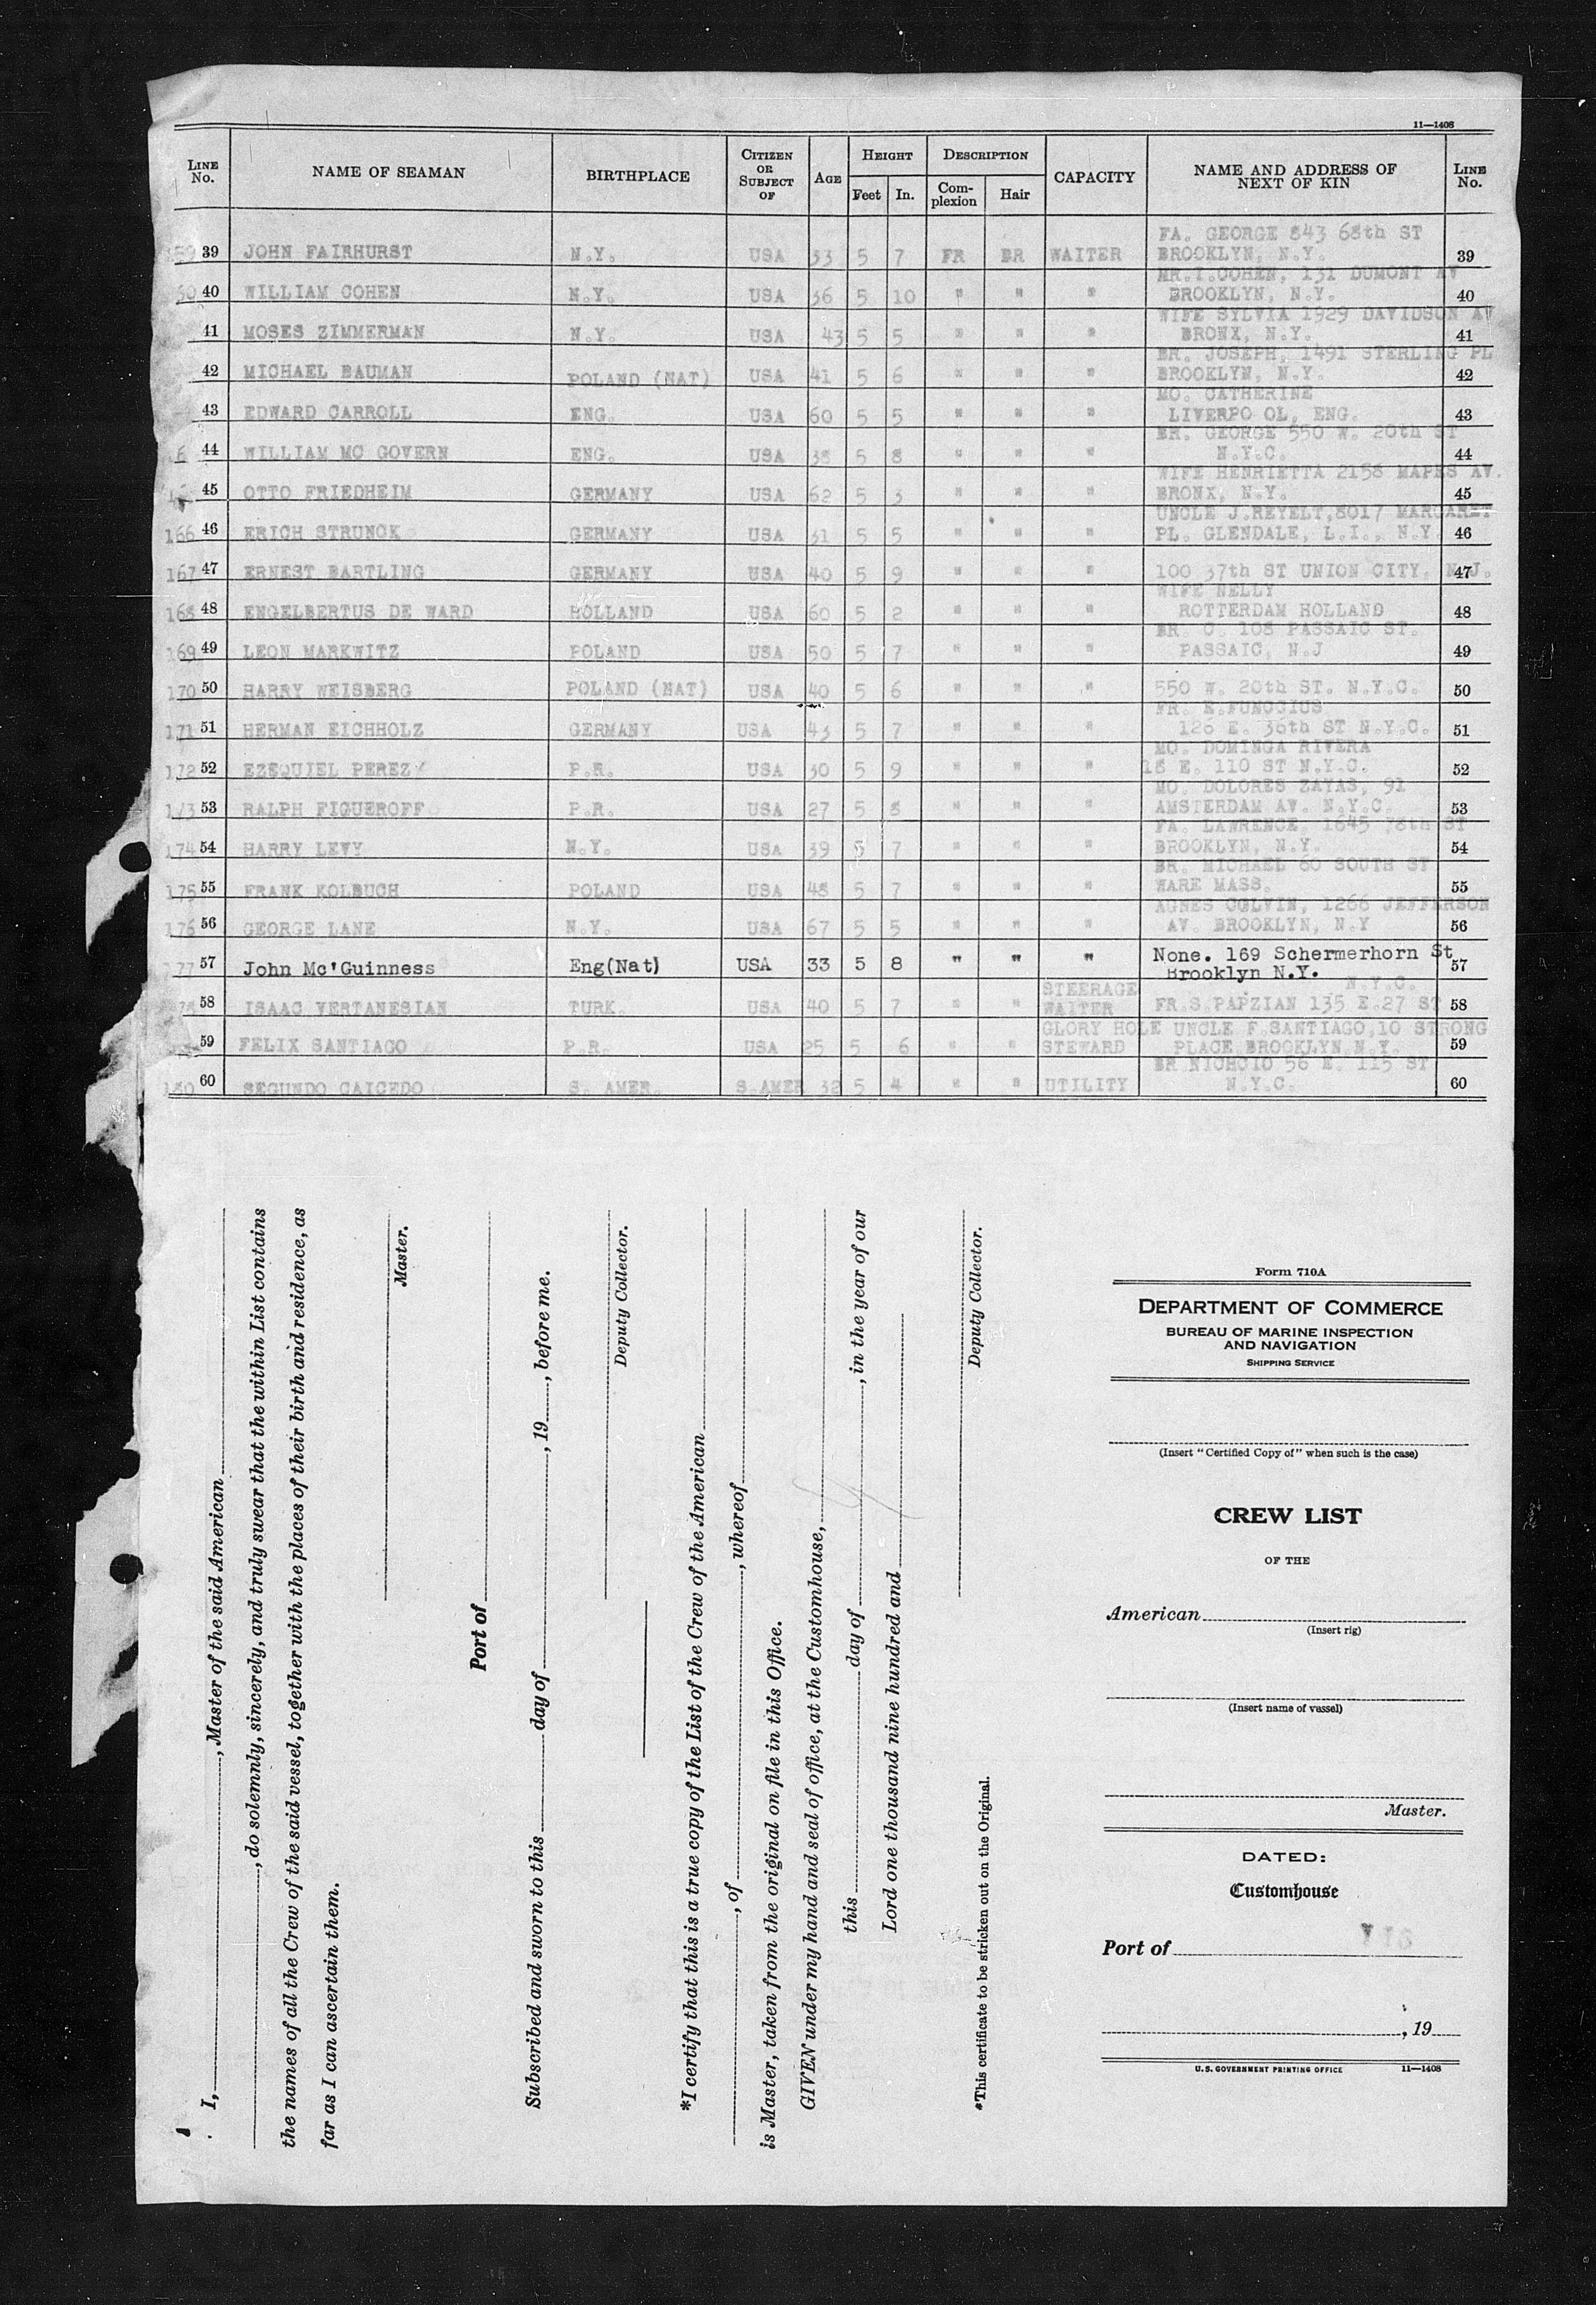 11—1408
LINE No. NAME OF SEAMAN BIRTHPLACE CITIZEN OR SUBJECT OF AGE HEIGHT Feet In. DESCRIPTION Complexion Hair CAPACITY NAME AND ADDRESS OF NEXT OF KIN LINE No.
FA. GEORGE 843 68th ST
39 JOHN FAIRHURST N.Y. USA 33 5 7 FR BR WAITER BROOKLYN, N.Y. 39
MR.I.COHEN, 131 DUMONT AV
40 WILLIAM COHEN N.Y. USA 36 5 10 " " " BROOKLYN, N.Y. 40
WIFE SYLVIA 1929 DAVIDSON AV
41 MOSES ZIMMERMAN N.Y. USA 43 5 5 " " " BRONX, N.Y. 41
BR. JOSEPH, 1491 STERLING PL
42 MICHAEL BAUMAN POLAND (NAT) USA 41 5 6 " " " BROOKLYN, N.Y. 42
MO. CATHERINE
43 EDWARD CARROLL ENG. USA 60 5 5 " " " LIVERPO OL, ENG. 43
BR. GEORGE 550 W. 20th ST
44 WILLIAM MC GOVERN ENG. USA 38 5 8 " " " N.Y.C. 44
WIFE HENRIETTA 2158 MAPKS AV.
45 OTTO FRIEDHEIM GERMANY USA 62 5 3 " " " BRONX, N.Y. 45
UNCLE J.REYELT,8017 MARGARET
166 46 ERICH STRUNCK GERMANY USA 31 5 5 " " " PL. GLENDALE, L.I., N.Y. 46
167 47 ERNEST BARTLING GERMANY USA 40 5 9 " " " 100 37th ST UNION CITY, N.J. 47
WIFE NELLY
168 48 ENGELBERTUS DE WARD HOLLAND USA 60 5 2 " " " ROTTERDAM HOLLAND 48
BR. C. 108 PASSAIC ST.
169 49 LEON MARKWITZ POLAND USA 50 5 7 " " " PASSAIC, N.J 49
170 50 HARRY WEISBERG POLAND (NAT) USA 40 5 6 " " " 550 W. 20th ST. N.Y.C. 50
FR. E.FUNCCIUS
171 51 HERMAN EICHHOLZ GERMANY USA 43 5 7 " " " 126 E. 36th ST N.Y.C. 51
MO. DOMINGA RIVERA
172 52 EZEQUIEL PEREZ P.R. USA 30 5 9 " " " 18 E. 110 ST N.Y.C. 52
MO. DOLORES ZAYAS, 91
173 53 RALPH FIGUEROFF P.R. USA 27 5 8 " " " AMSTERDAM AV. N.Y.C. 53
FA. LAWRENCE, 1645 78th ST
174 54 HARRY LEVY N.Y. USA 39 5 7 " " " BROOKLYN, N.Y. 54
BR. MICHAEL 60 SOUTH ST
175 55 FRANK KOLBUCH POLAND USA 48 5 7 " " " WARE MASS. 55
AGNES COLVIN, 1266 JEFFERSON
176 56 GEORGE LANE N.Y. USA 67 5 5 " " " AV. BROOKLYN, N.Y 56
None. 169 Schermerhorn St
57 John Mc'Guinness Eng(Nat) USA 33 5 8 " " " Brooklyn N.Y. 57
STEERAGE N.Y.C.
58 ISAAC VERTANESIAN TURK. USA 40 5 7 WAITER FR.S.PAPZIAN 135 E.27 ST 58
GLORY HOLE UNCLE F.SANTIAGO,10 STRONG
59 FELIX SANTIAGO P.R. USA 25 5 6 " " STEWARD PLACE BROOKLYN N.Y. 59
BR NICHOIO 56 E. 115 ST
180 60 SEGUNDO CAICEDO S. AMER. S.AMER 32 5 4 " " UTILITY N.Y.C. 60
I, , Master of the said American
, do solemnly, sincerely, and truly swear that the within List contains
the names of all the Crew of the said vessel, together with the places of their birth and residence, as
far as I can ascertain them.
Master.
Port of
Subscribed and sworn to this day of , 19 , before me.
Deputy Collector.
*I certify that this is a true copy of the List of the Crew of the American
, of , whereof
is Master, taken from the original on file in this Office.
GIVEN under my hand and seal of office, at the Customhouse,
this day of , in the year of our
Lord one thousand nine hundred and
Deputy Collector.
*This certificate to be stricken out on the Original.
Form 710A
DEPARTMENT OF COMMERCE
BUREAU OF MARINE INSPECTION
AND NAVIGATION
SHIPPING SERVICE
(Insert "Certified Copy of" when such is the case)
CREW LIST
OF THE
American
(Insert rig)
(Insert name of vessel)
Master.
DATED:
Customhouse
Port of
, 19
U.S. GOVERNMENT PRINTING OFFICE 11—1408